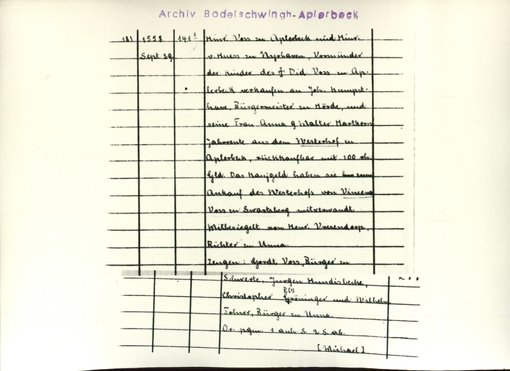 Archiv Bodelschwingh-Aplerbeck
181 1558 141¹ Hinr. Voss zu Aplerbeck und Hinr.
Sept 29 v. Huess zu Nyehaven, Vormünder
der Kinder des † Did. Voss zu Ap-
lerbeck verkaufen an Joh. Kumpst-
have, Bürgermeister zu Hörde, und
seine Frau Anna 9 Malter Hartkorn
Jahrrente aus dem Westerhof in
Aplerbek, rückkaufbar mit 100 rh.
Gld. Das Kaufgeld haben sie zum
Ankauf des Westerhofs von
Voss zu Swartzberg mitverwandt.
Mitbesiegelt von Henr.
Richter zu Unna.
Zeugen: Gordt Voss, Bürger zu
Schwerte, Jurgen
Christopher Gröninger und Wilhelm
Tolner, Bürger zu Unna.
Or. pgm. 1 anh. S. 2 S. ab.
[Michael]